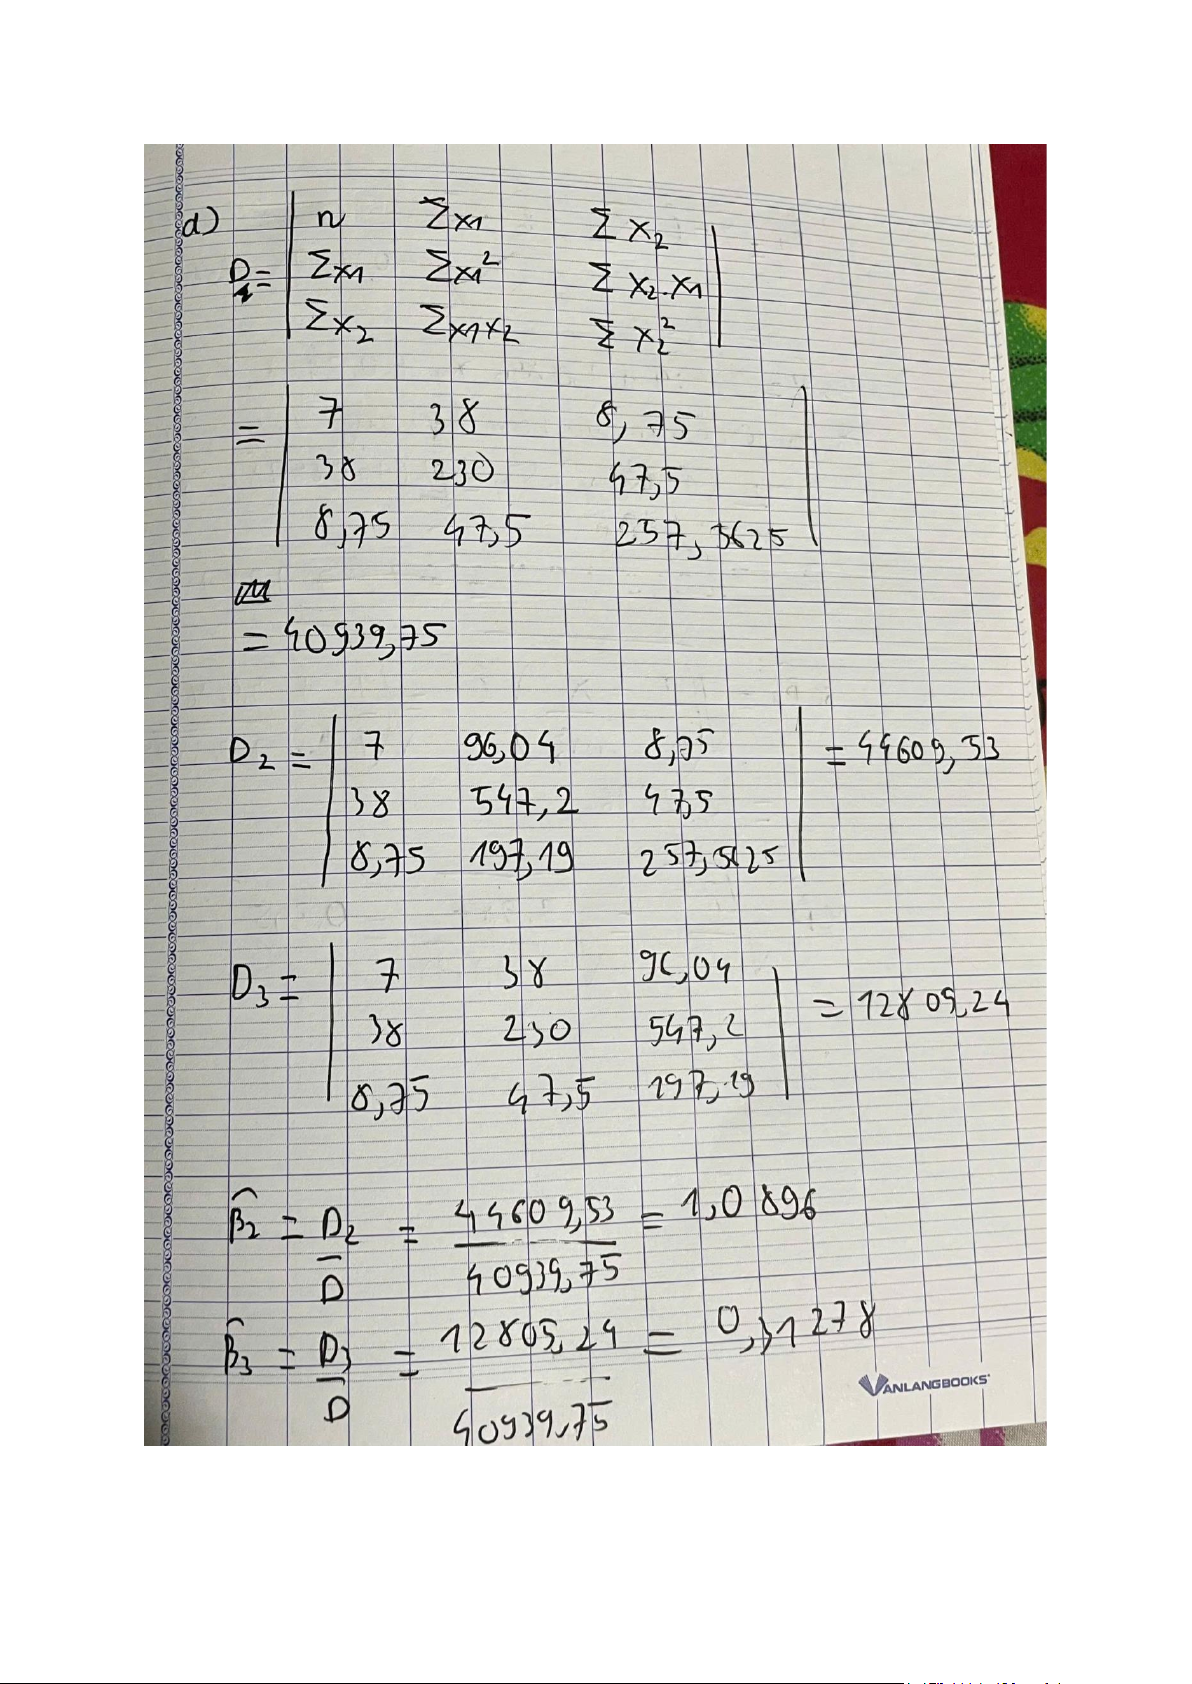 d)
D = | n Σx1 Σx2 |
| Σx1 Σx1² Σx2.x1 |
| Σx2 Σx1x2 Σx2² |
= | 7 38 8,75 |
| 38 230 47,5 |
| 8,75 47,5 257,5625 |
= 40939,75
D2 = | 7 96,04 8,75 | = 44609,53
| 38 547,2 47,5 |
| 8,75 197,19 257,5625 |
D3 = | 7 38 96,04 | = 12809,24
| 38 230 547,2 |
| 8,75 47,5 197,19 |
β̂2 = D2/D = 44609,53/40939,75 = 1,0896
β̂3 = D3/D = 12805,24/40939,75 = 0,31278
VANLANGBOOKS